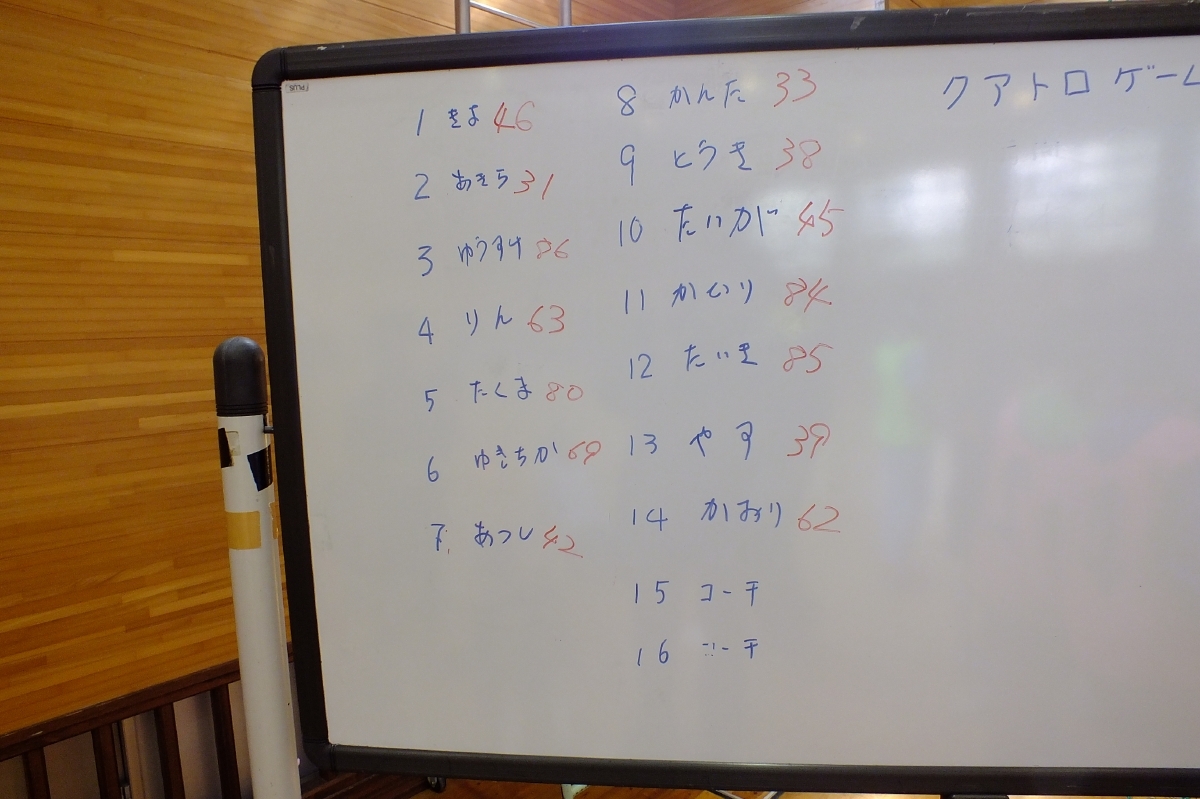 PLUS
1 きよ 46
2 あきら 31
3 ゆうすけ 86
4 りん 63
5 たくま 80
6 ゆきちか 69
7 あつし 42
8 かんた 33
9 とうき 38
10 たいが 45
11 84
12 たいき 85
13 やす 39
14 かおり 62
15 コーチ
16 コーチ
クアトロゲーム